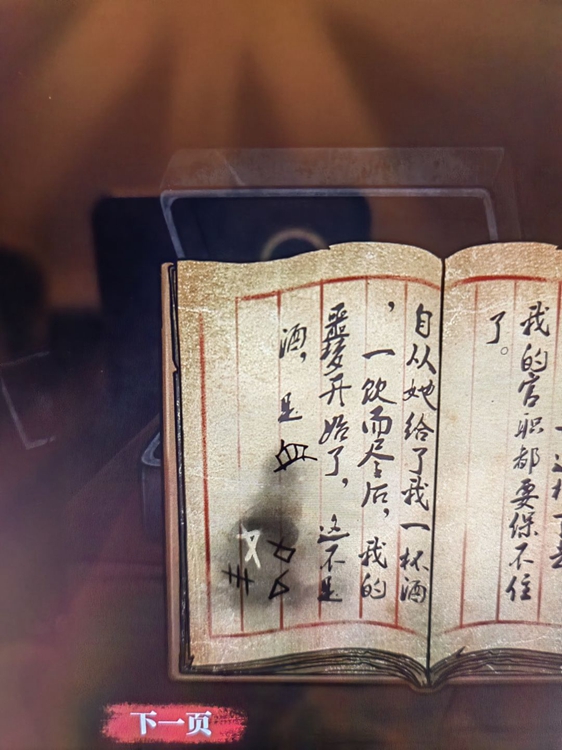 我的官职都要保不住
了。
自从她给了我一杯酒
，一饮而尽后，我的
噩梦开始了，这不是
酒，是血
下一页